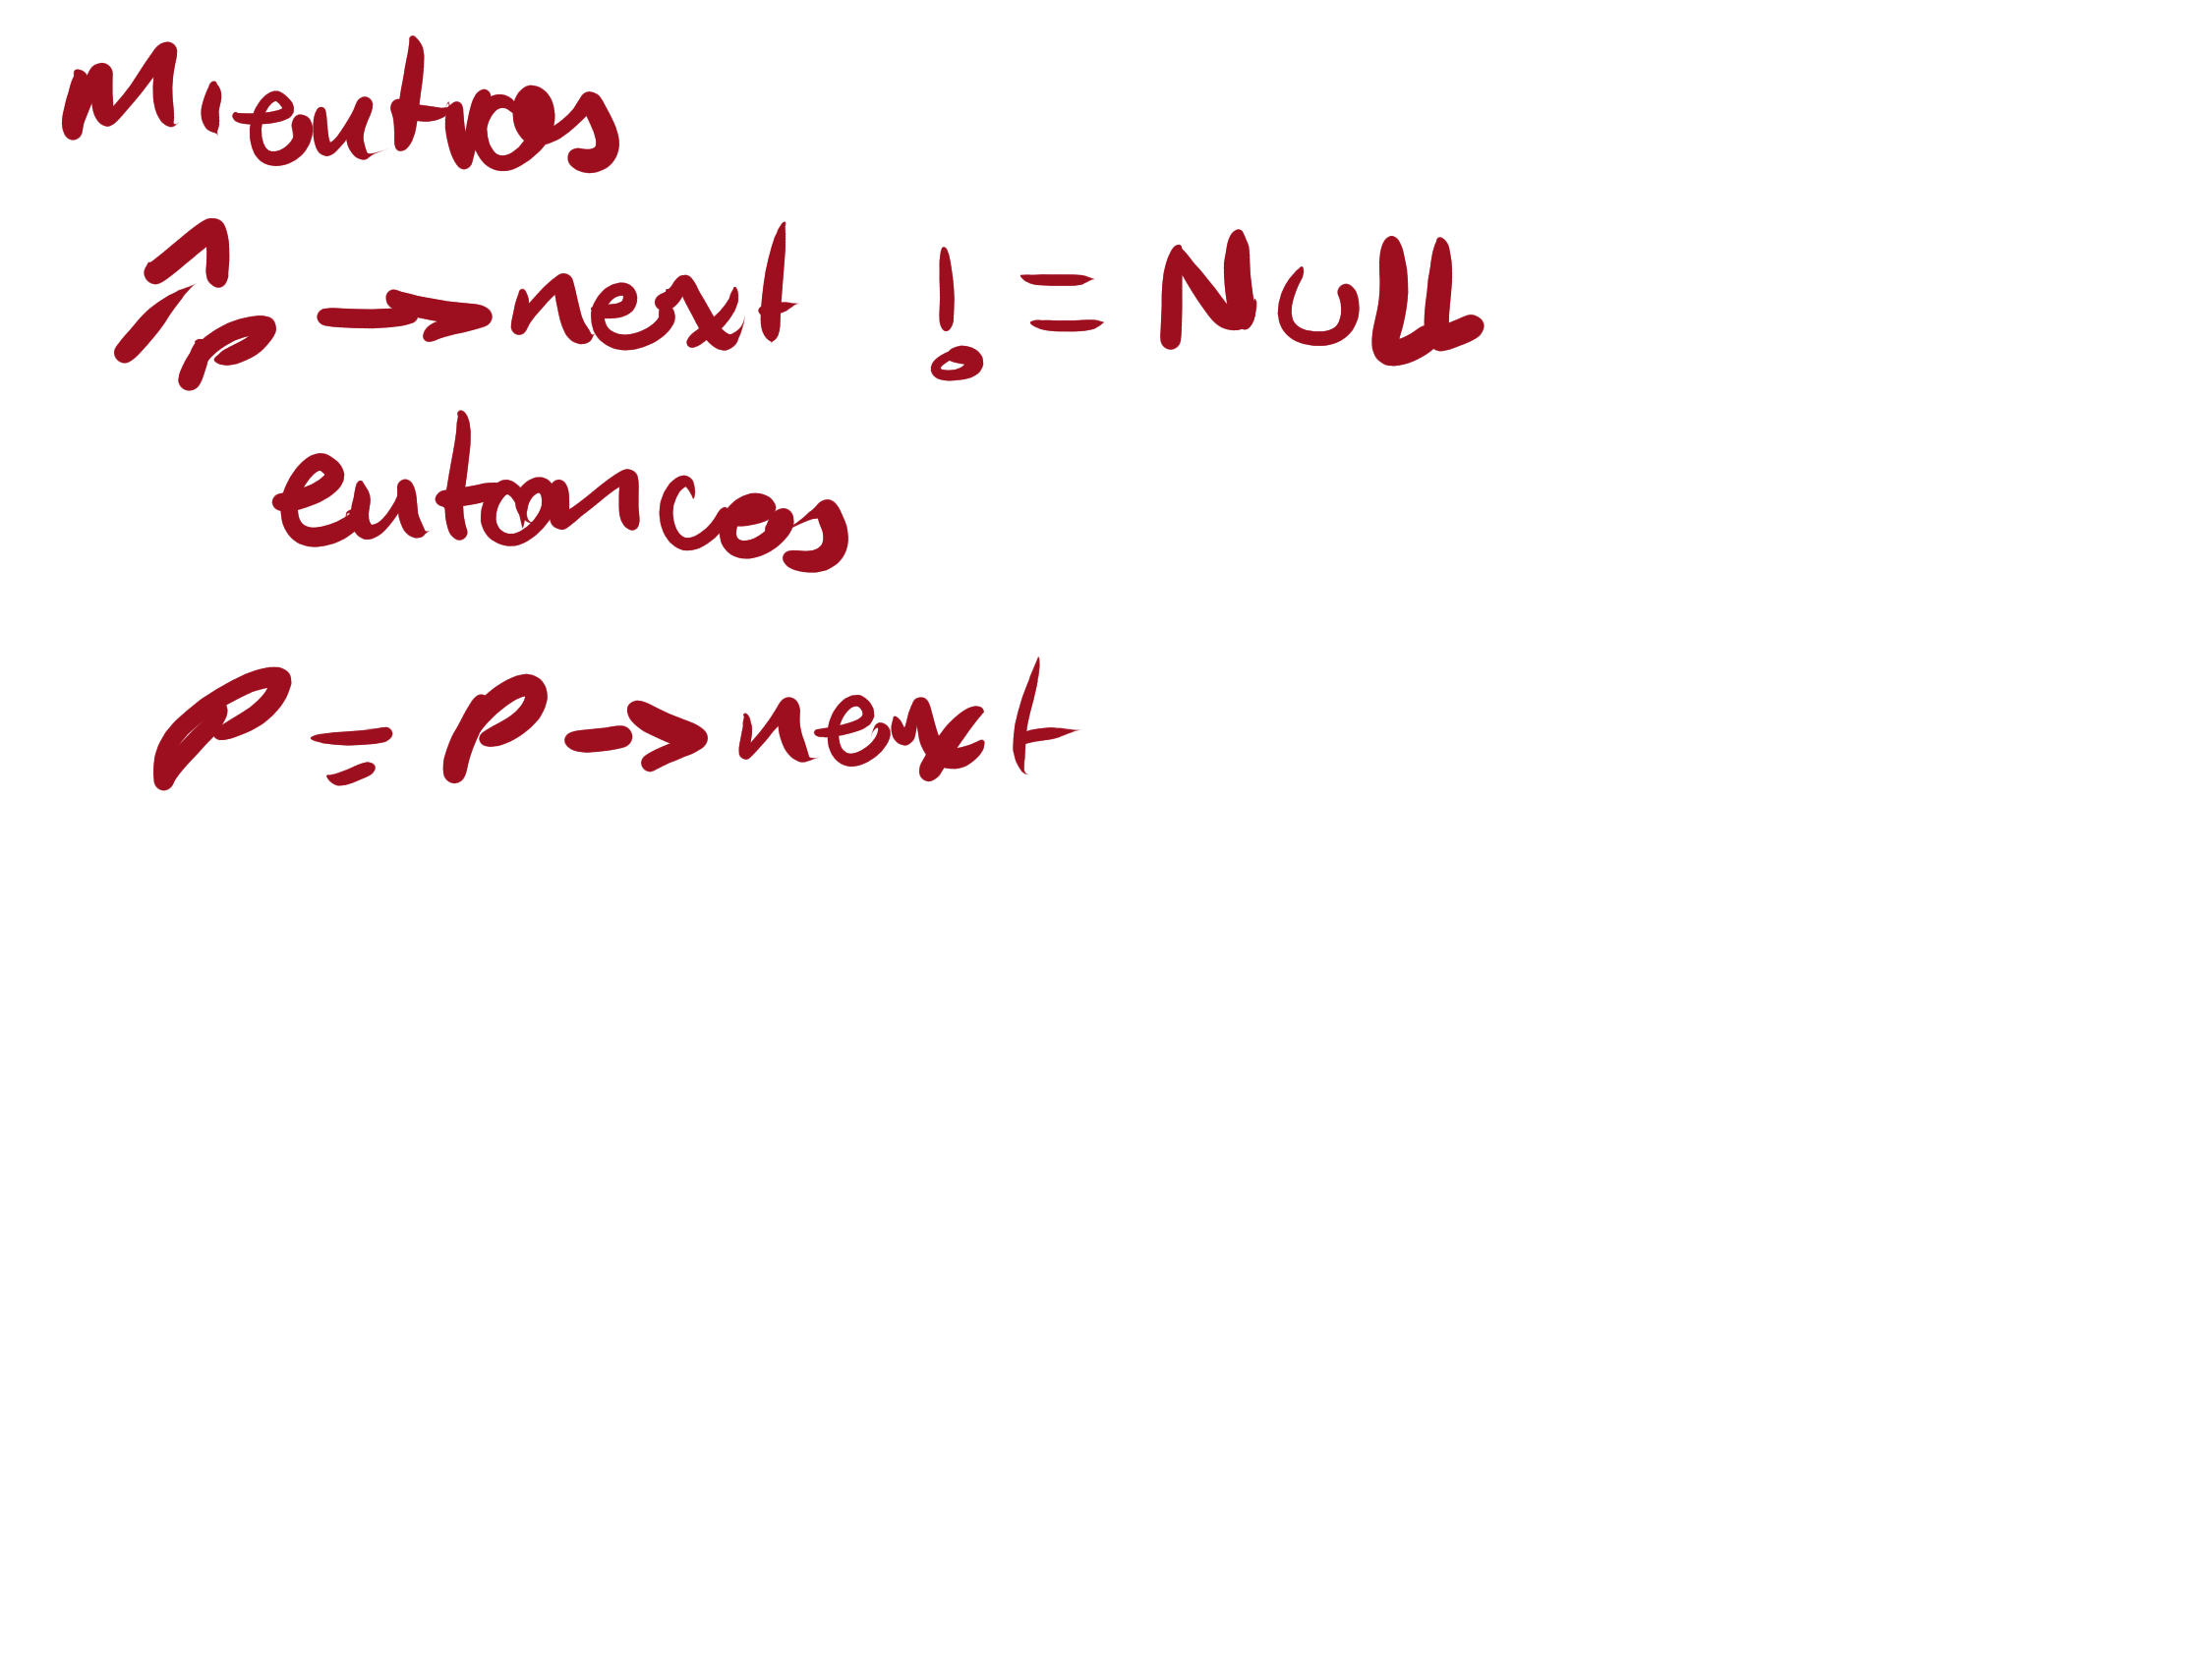 Mientras
p → next != Null
entonces
p = p -> next